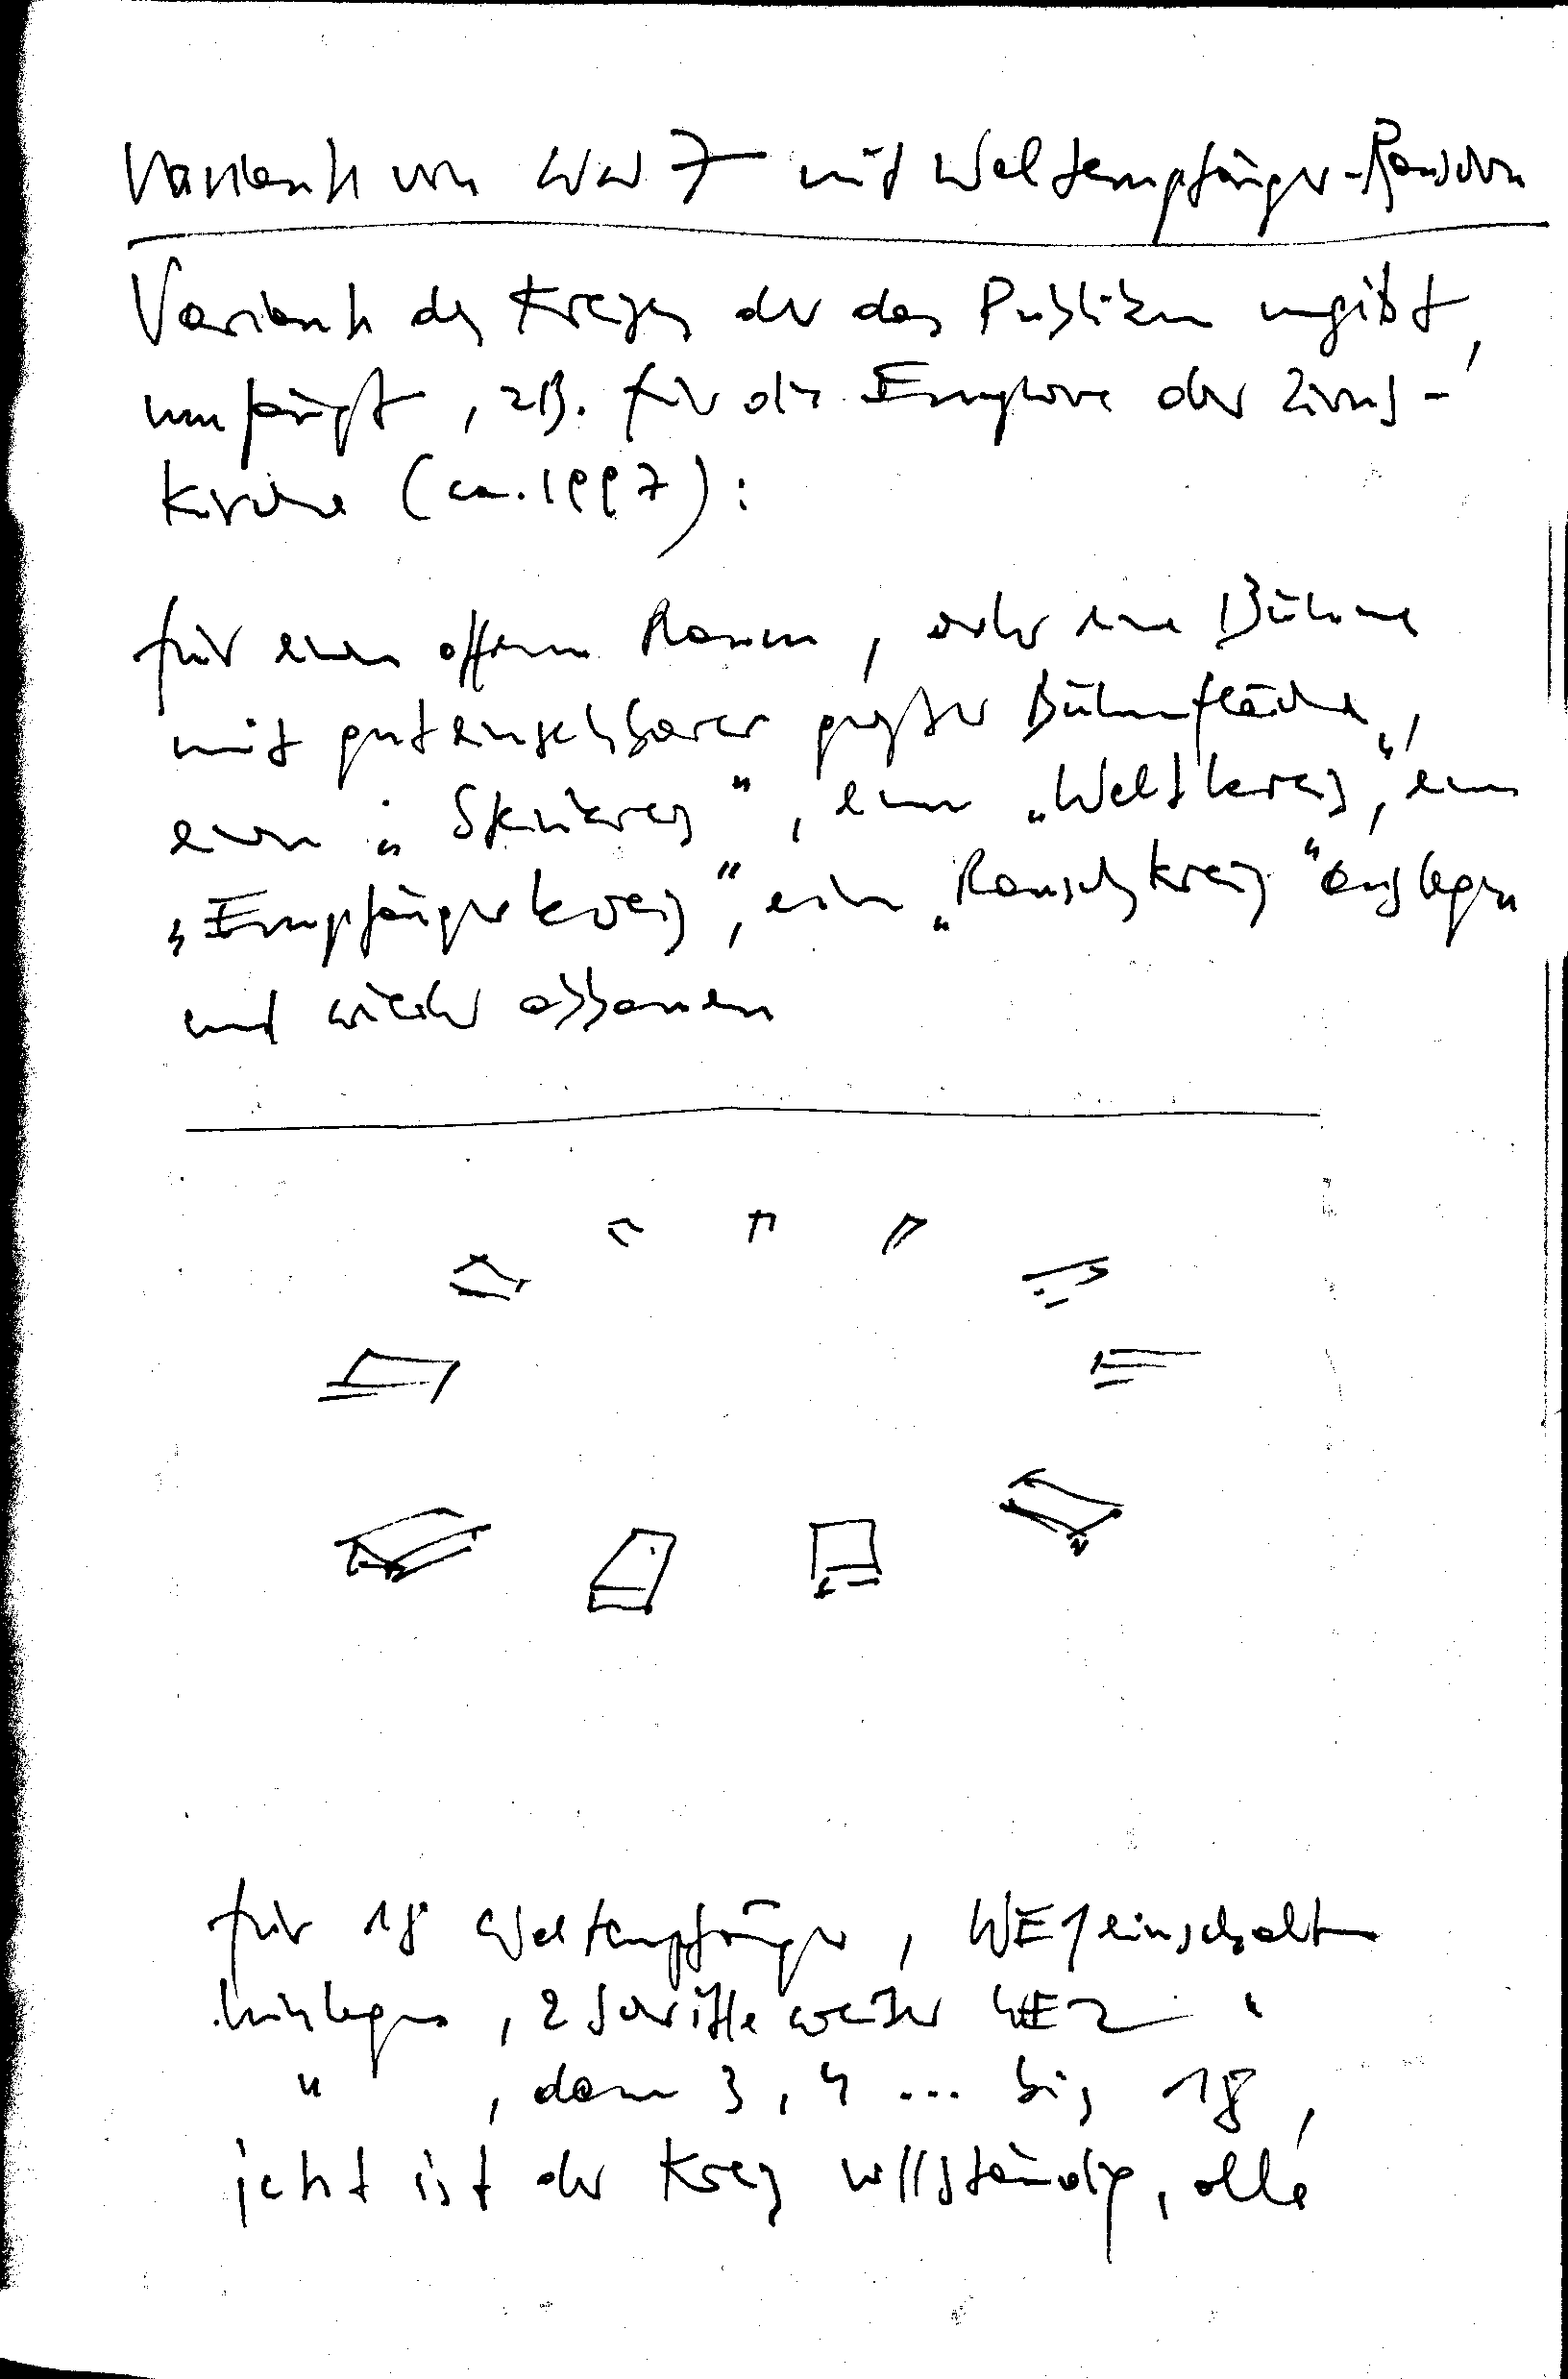 Variante von WW 7 mit Weltempfänger-Rauschen
Variante des Kreises der das Publikum umgibt,
umfängt, zB. für die Empore der Zions-
kirche (ca. 1997):
für einen offenen Raum, oder eine Bühne
mit guteinsehbarer großer Bühnenfläche,
einen „Steinkreis", einen „Weltkreis", einen
„Empfängerkreis", einen „Rauschkreis" auslegen
und wieder abbauen
für 18 Weltempfänger, WE1 einschalten
hinlegen, 2 Schritte weiter WE2 "
" , dann 3, 4 ... bis 18,
jetzt ist der Kreis vollständig, alle